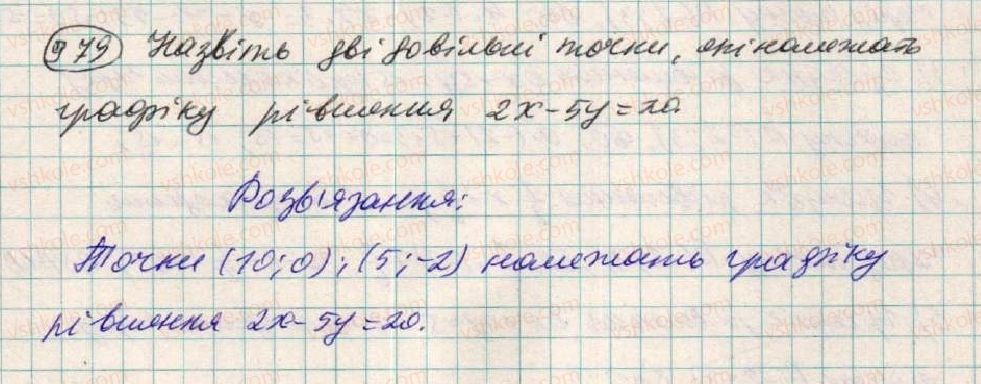 979 Назвіть дві довільні точки, які належать
графіку рівняння 2x-5y=20.
Розв'язання:
Точки (10;0); (5;-2) належать графіку
рівняння 2x-5y=20.